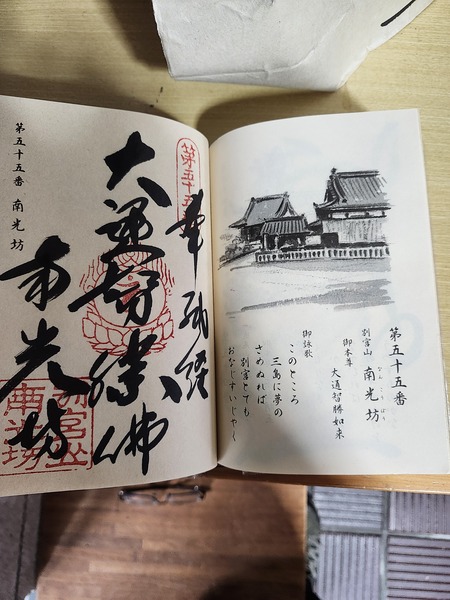 第五十五番
別宮山 南光坊
なんこうぼう
御本尊 大通智勝如来
御詠歌
このところ
三島に夢の
さめぬれば
別宮とても
おなじすいじやく
第五十五
奉納経
大通智勝佛
南光坊
別宮山
南光坊
第五十五番 南光坊